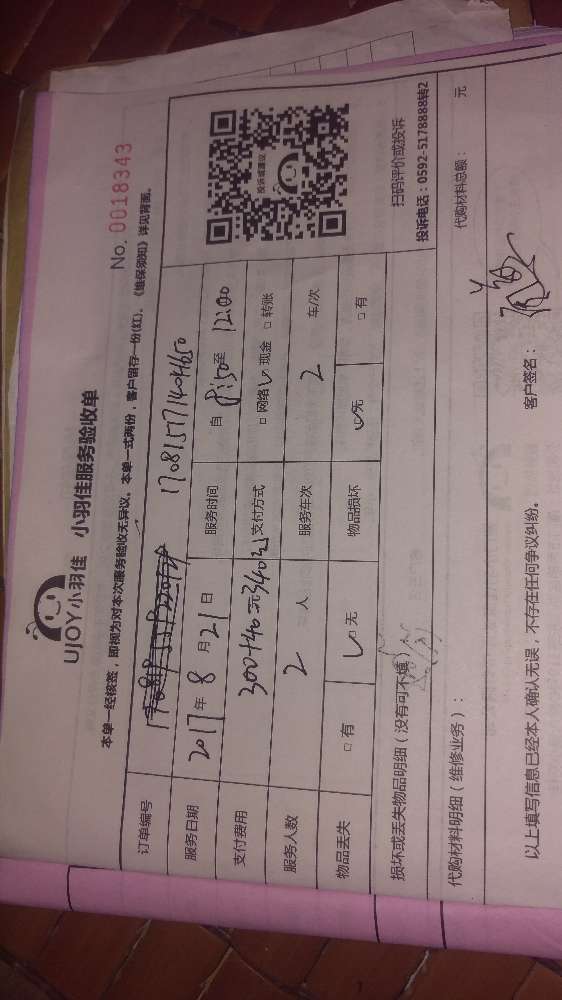 UJOY小羽佳 小羽佳服务验收单
No. 0018343
本单一经核签，即视为对本次服务验收无异议。本单一式两份，客户留存一份(红)。《维保须知》详见背面。
订单编号 170815771404650
服务日期 2017年8月21日 服务时间 自8:50至12:00
支付费用 300+40元 340元 支付方式 □网络 ✓现金 □转账
服务人数 2人 服务车次 2 车/次
物品丢失 □有 ✓□无 物品损坏 ✓无 □有
投诉或建议
扫码评价或投诉
投诉电话：0592-5178888转2
损坏或丢失物品明细（没有可不填）
代购材料明细（维修业务）：
代购材料总额： 元
以上填写信息已经本人确认无误，不存在任何争议纠纷。 客户签名：